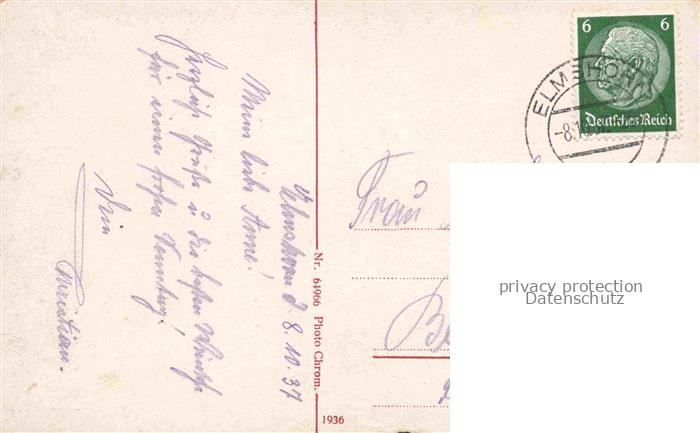 Elmshorn d. 8.10.37
Mein liebe Anne!
Herzliche Grüße u die besten Wünsche
für einen frohen Sonntag!
Dein
Christian.
Nr. 64966 Photo Chrom.
1936
6 6
Deutsches Reich
ELMSHORN
Frau
privacy protection
Datenschutz